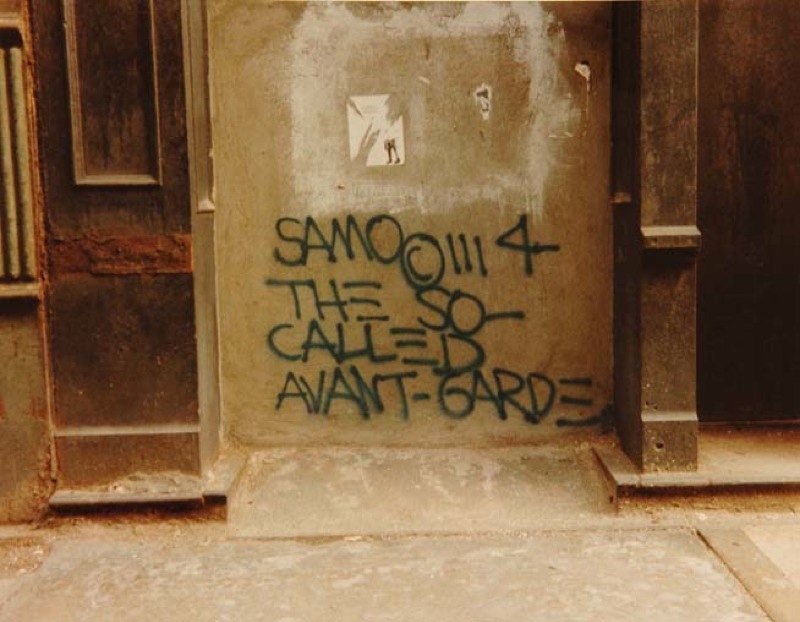 SAMO©III 4
THE SO-
CALLED
AVANT-GARDE